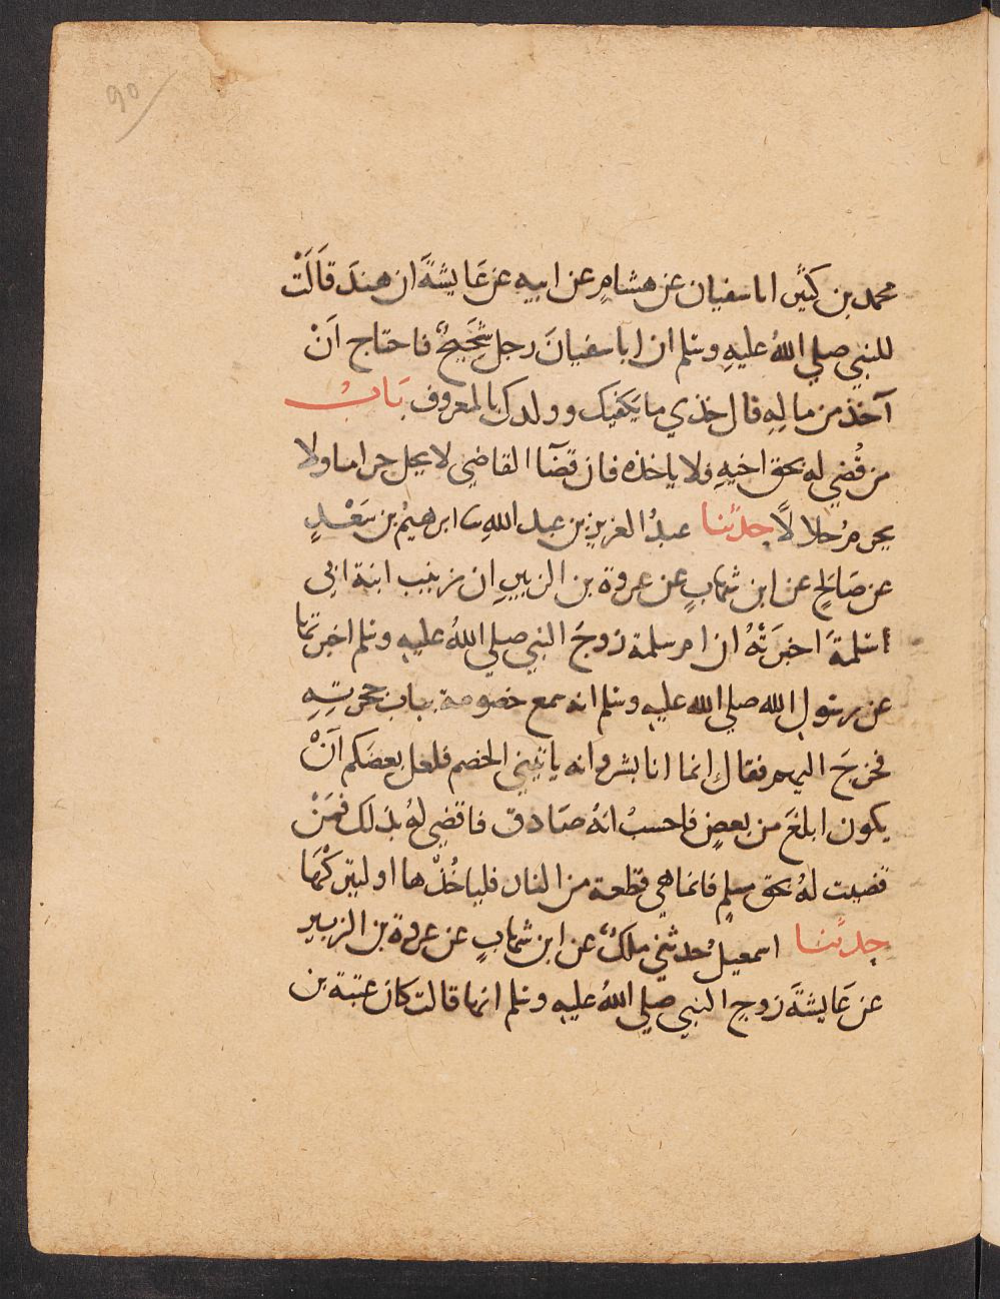 90
محمد بن كثير انا سفيان عن هشامٍ عن ابيه عن عَايشةَ ان هندَ قَالَتْ
للنبي صلي اللهُ عليهِ وسلم ان اباسفيانَ رجل شَحِيحٌ فاحتاج اَنْ
آخذ من مالِهِ قال خذي ما يَكفيك وولدك بالمعروف بَابُ
من قُضي له بحق اخيهِ فلا ياخذه فان قضَآ القاضي لا يحل حراما ولا
يحرم حلالاً حدثنا عبدُ العزيز بن عبد اللهِ نا ابرهيمُ بن سَعْدٍ
عن صَالحٍ عن ابن شهابٍ عن عروة بن الزبيرِ ان زينب ابنة ابي
سَلمةَ اخبرَتْهُ ان ام سلمة زوجَ النبي صلي اللهُ عليهِ وسلم اخبرتها
عن رسولِ الله صلي الله عليهِ وسلم انه سمع خصومة بباب حجرتِهِ
فخرجَ اليهم فقال انما انا بشر وانه ياتيني الخصم فلعل بعضَكم اَنْ
يكون ابلغَ من بعضٍ فاحسبُ انهُ صَادق فاقضي لهُ بذلك فمَنْ
قضيت لهُ بحق مسلمٍ فانما هي قطعة من النار فلياخُذْها او ليتركْهَا
حدثنا اسمعيلُ حدثني ملكٌ عن ابن شهابٍ عن عروة بن الزبيرِ
عن عَايشةَ زوجِ النبي صلي اللهُ عليهِ وسلم انها قالت كان عتبة بن